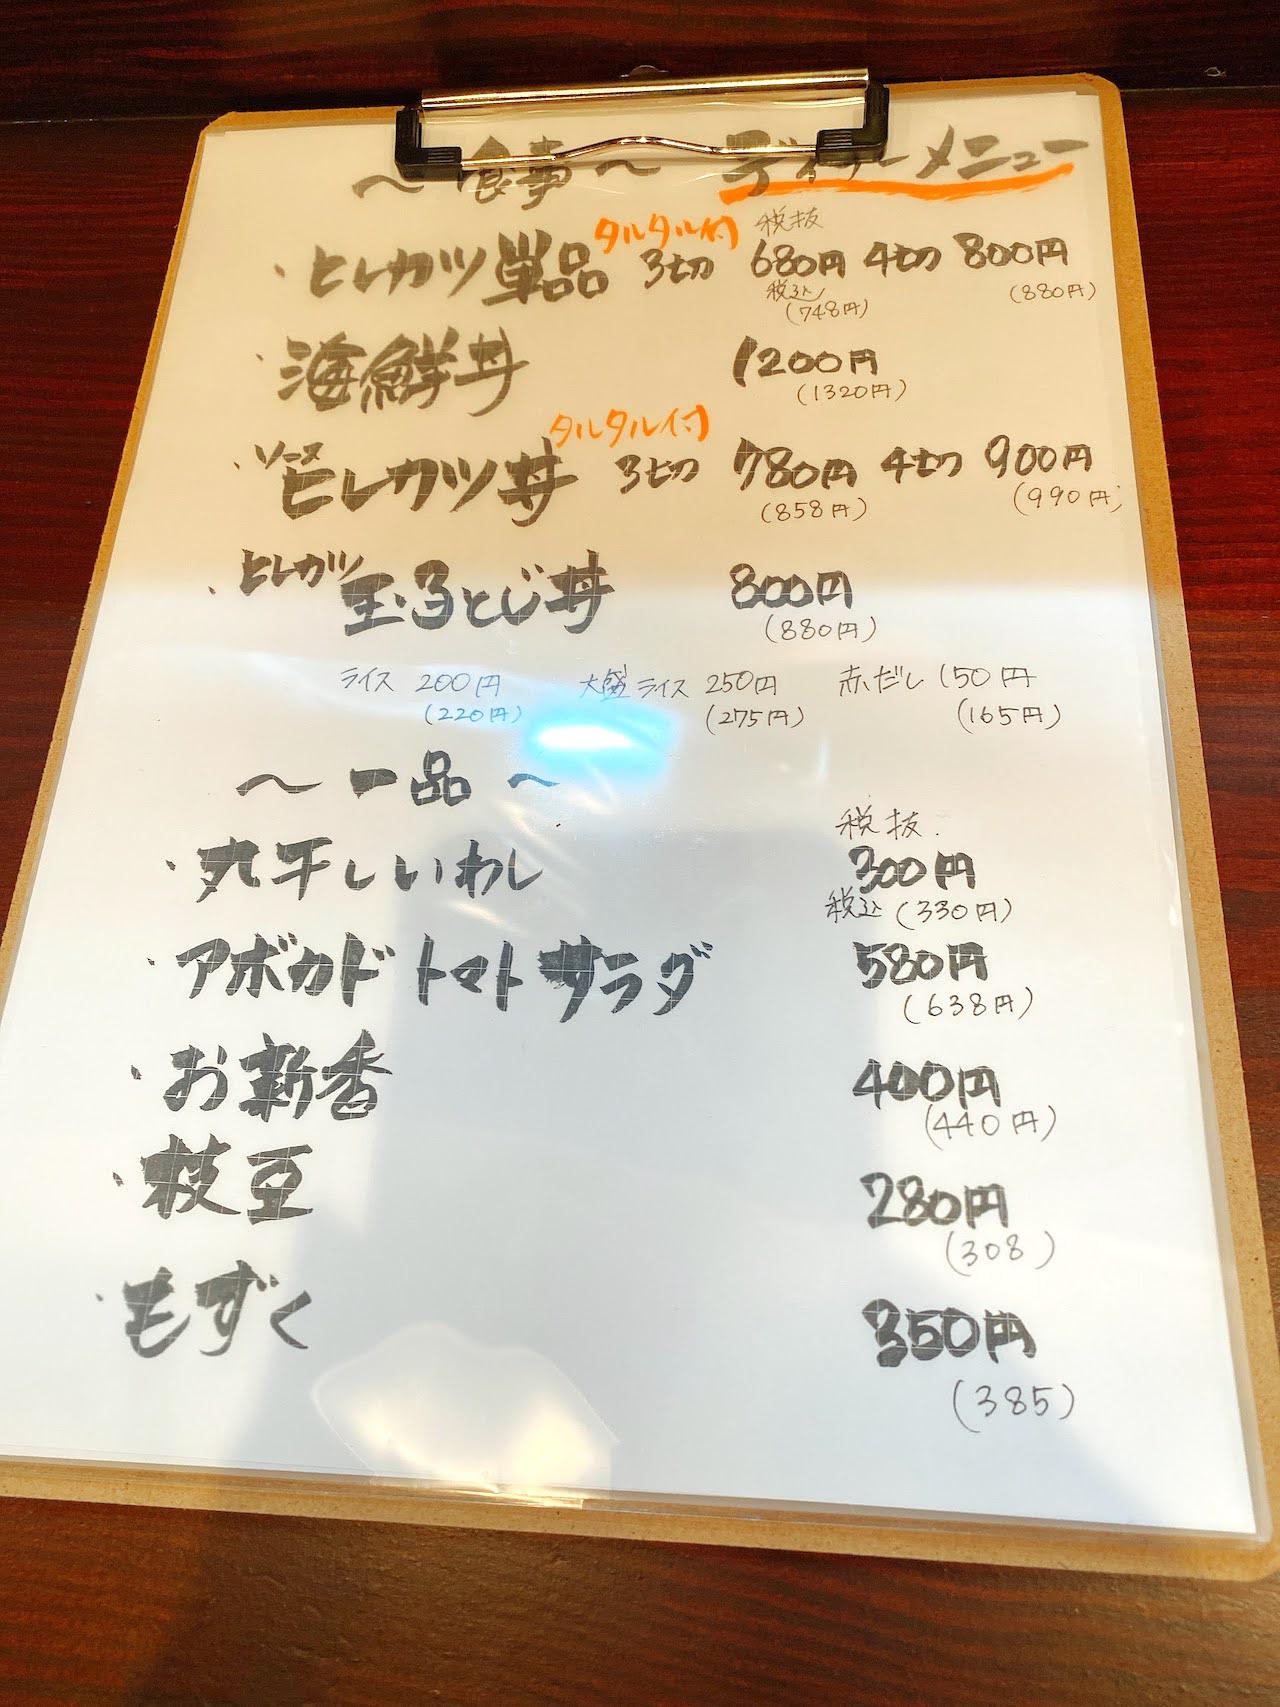 ～食事～ ディナーメニュー
タルタル付 税抜
・ヒレカツ単品 3切 680円 4切 800円
税込 (748円) (880円)
・海鮮丼 1200円
(1320円)
タルタル付
・ソースヒレカツ丼 3切 780円 4切 900円
(858円) (990円)
・ヒレカツ玉子とじ丼 800円
(880円)
ライス 200円 大盛ライス 250円 赤だし 150円
(220円) (275円) (165円)
～一品～
税抜
・丸干しいわし 300円
税込 (330円)
・アボカドトマトサラダ 580円
(638円)
・お新香 400円
(440円)
・枝豆 280円
(308)
・もずく 350円
(385)